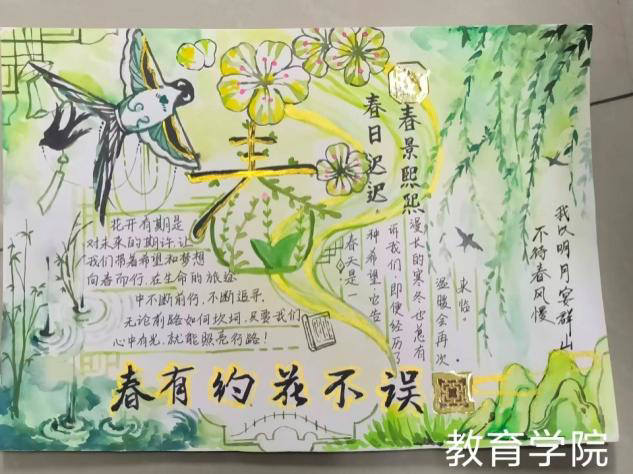 春
春景熙熙
春日迟迟
花开有期是
对未来的期许,让
我们带着希望和梦想
向春而行,在生命的旅途
中不断前行,不断追寻.
无论前路如何坎坷,只要我们
心中有光,就能照亮行路!
春天是一
种希望,它告
诉我们,即使经历了
漫长的寒冬,也总有
温暖会再次
来临.
我以明月寄群山
不待春风慢
春有约花不误
教育学院